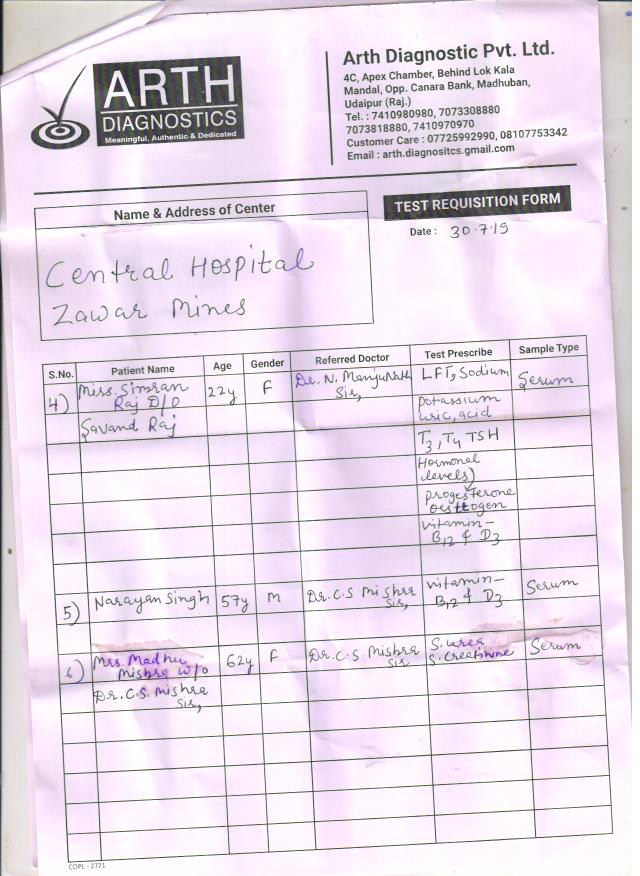 ARTH
DIAGNOSTICS
Meaningful, Authentic & Dedicated
Arth Diagnostic Pvt. Ltd.
4C, Apex Chamber, Behind Lok Kala
Mandal, Opp. Canara Bank, Madhuban,
Udaipur (Raj.)
Tel. : 7410980980, 7073308880
7073818880, 7410970970
Customer Care : 07725992990, 08107753342
Email : arth.diagnositcs.gmail.com
Name & Address of Center
TEST REQUISITION FORM
Date : 30.7.19
Central Hospital
Zawar Mines
S.No. Patient Name Age Gender Referred Doctor Test Prescribe Sample Type
4) Miss. Simran 22y F Dr. N. ManjuNath LFT, Sodium Serum
Raj D/O Sir,
Savand Raj potassium
uric, acid
T3, T4 TSH
Hormonal
levels)
progesterone
oesttogen
vitamin-
B12 & D3
5) Narayan Singh 57y M Dr. C.S Mishra vitamin- Serum
Sir, B12 & D3
6) Mrs. Madhu 62y F Dr. C.S Mishra S. urea Serum
Mishra W/O Sir S. Creatinine
Dr. C.S. Mishra
Sir,
COPL - 2771